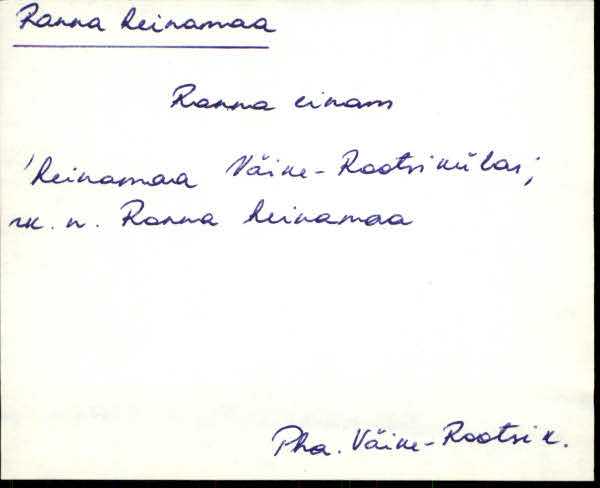 Ranna heinamaa
Ranna einam
'heinamaa Väike-Rootsikülas;
rk. n. Ranna heinamaa
Pha. Väike-Rootsi k.